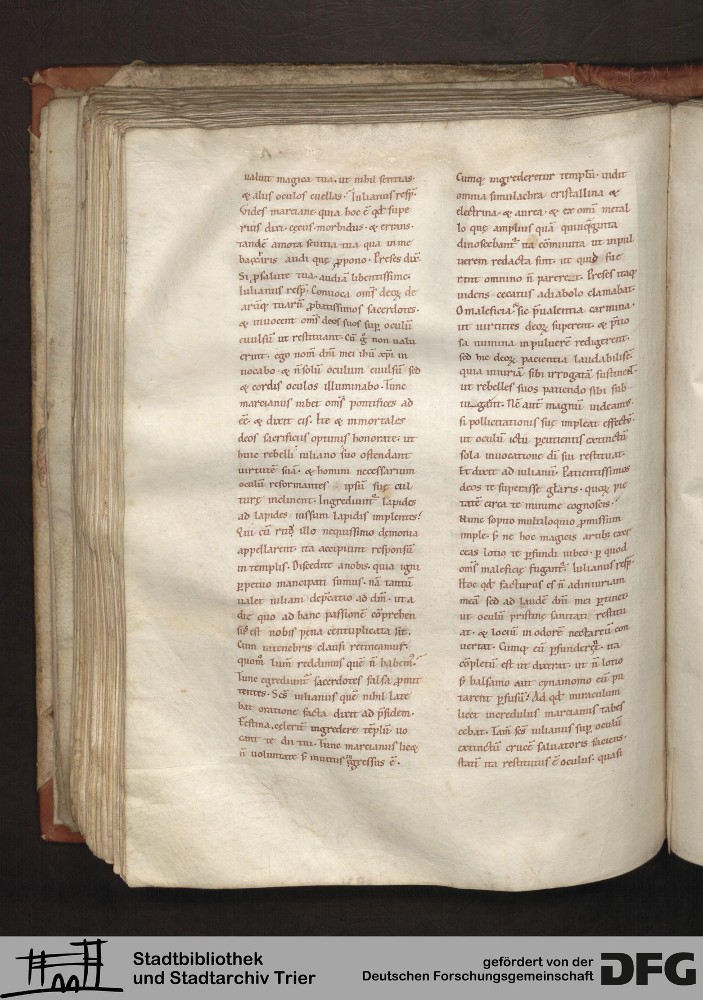 ualuit magica tua. ut nihil sentias.
& aliis oculos euellas. Iulianus resp̄.
Vides marciane quia hoc ē qd̄ supe
rius dixi. cecus. morbidus. & errans.
tandē amota seuitia tua qua in me
audi que ꝓpono. Preses dix̄
Si ꝓ salute tua. audiā libentissime.
Iulianus resp̄. Conuoca om̄s deoꝝ de
arūq; tuarū ꝓbatissimos sacerdotes.
& inuocent om̄s deos suos sup oculū
euulsū ut restituant. Cū g̊ non ualu
erint. ego nom̄ dn̄i mei ihū xp̄i in
uocabo. & n̄ solū oculum euulsū sed
& cordis oculos illuminabo. Tunc
marcianus iubet om̄s pontifices ad
ēē. & dixit eis. Ite & immortales
deos sacrificiis optimis honorate. ut
huic rebelli iuliano suo ostendant
uirtutē suā. & homini necessarium
oculū reformantes ipsū suę cul
turę inclinent. Ingrediunt̄ lapides
ad lapides iussum lapidis implentes.
Qui cū ritu illo nequissimo demonia
appellarent. ita accipiunt responsū
in templis. Discedite a nobis. quia igni
ꝑpetuo mancipati sumus. nā tantū
ualet iuliani dep̄catio ad dm̄. ut a
die quo ad hanc passionē cōprehen
sus est nobis pena centuplicata sit.
Cum in tenebris clausi retineamur.
quom̊ lum̄ reddimus quē n̄ habem᷒.
Tunc egrediunt̄ sacerdotes falsa ꝓmit
tentes. Sc̄s iulianus quē nihil late
bat oratione facta dixit ad p̄sidem.
Festina. celeriū ingredere tēplū uo
cant te dii tui. Tunc marcianus licę
n̄ uoluntate s̄ inuitus ingressus ē.
Cumq; ingrederetur templū. uidit
omnia simulachra cristallina &
electrina. & aurea. & ex omī metal
lo quę amplius quā quinq̄ginta
dinoscebant᷒ ita cōminuta ut in pul
uerem redacta sint. ut quid fue
rint omnino n̄ pareret. Preses itaq;
uidens. cecatus a diabolo clamabat.
O maleficia. sic p̄ualentia carmina.
ut uirtutes deoꝝ superent. & p̄tio
sa numina in puluerē redigerent.
sed hic deoꝝ pacientia laudabilis ē.
quia iniuriā sibi irrogatā sustinent
ut rebelles suos patiendo sibi sub
iugent. Nc̄ aut̄ magnū uideamus.
si pollicitationis suę impleat effectū.
ut oculū ictu percutientis extinctū
sola inuocatione dī sui restituat.
Et dixit ad iulianū. Patientissimos
deos te superasse gl̄aris. quoꝝ pie
tatē circa te minime cognoscis.
Nunc sopito multiloquio ꝓmissum
imple. s̄ ne hoc magicis artib᷒ exer
ceas lotio te ꝑfundi iubeo. ꝑ quod
om̄s maleficię fugant᷒. Iulianus resp̄.
Hoc qd̄ facturus es n̄ ad iniuriam
meā sed ad laudē dn̄i mei ꝑtinet.
ut oculū pristinę sanitati restitu
at. & lociū in odorē nectareū con
uertat. Cumq; eū ꝑfunderet᷒. ita
cōpletū est ut dixerat. ut n̄ lotio
s̄ balsamo aut cynamomo eū pu
tarent ꝑfusū. Ad qd̄ miraculum
licet incredulus marcianus tabes
cebat. Tam̄ sc̄s iulianus sup oculū
extinctū crucē saluatoris faciens.
statī ita restitutus ē oculus. quasi
Stadtbibliothek
und Stadtarchiv Trier
gefördert von der
Deutschen Forschungsgemeinschaft
DFG